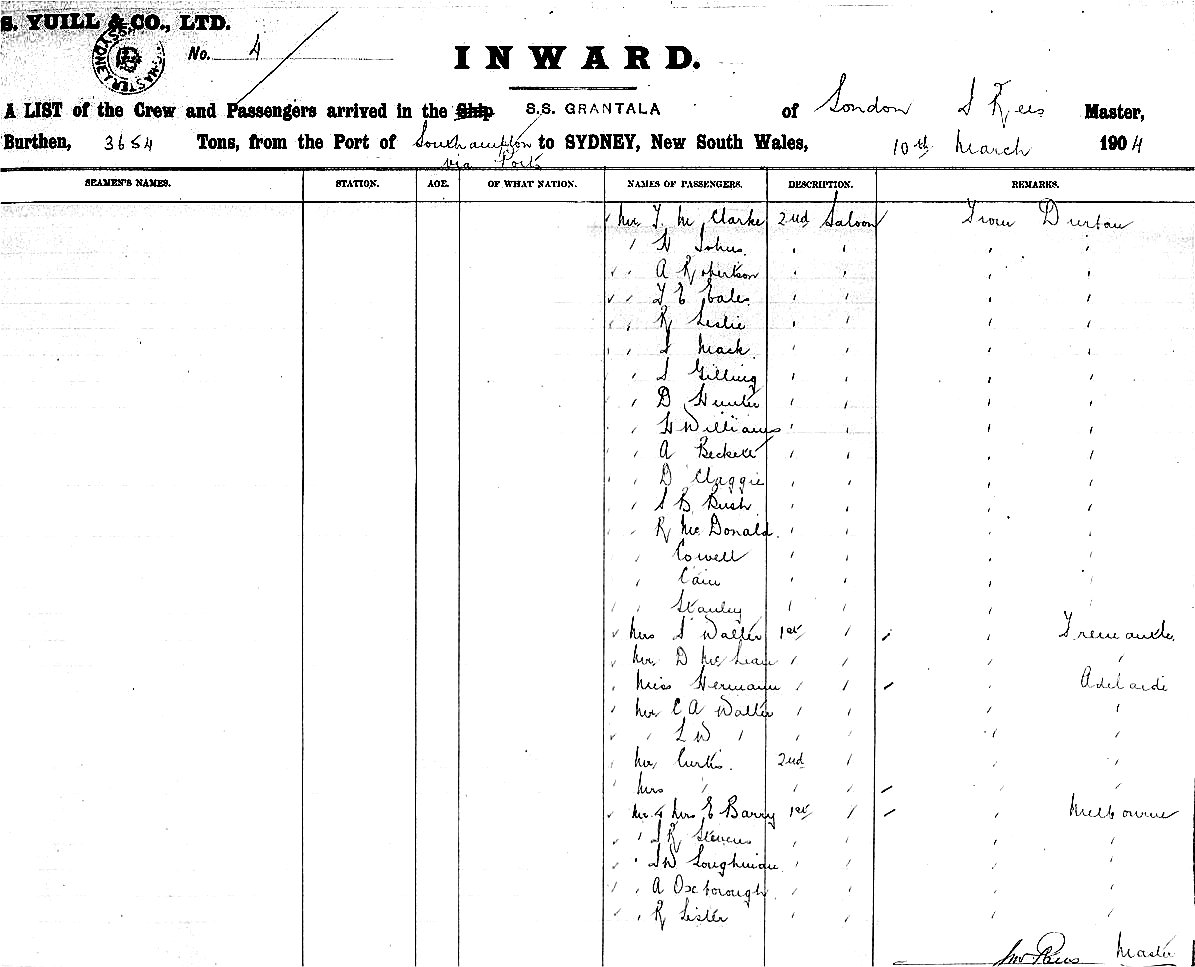 S. YUILL & CO., LTD.
No. 4
INWARD.
A LIST of the Crew and Passengers arrived in the Ship S.S. GRANTALA of London J Rees Master,
Burthen, 3654 Tons, from the Port of Southampton to SYDNEY, New South Wales, 10th March 1904
via Ports
SEAMEN'S NAMES. STATION. AGE. OF WHAT NATION. NAMES OF PASSENGERS. DESCRIPTION. REMARKS.
Mr. T. M Clarke 2nd Saloon From Durban
" H Johns " " " "
" A Robertson " " " "
" T E Eales " " " "
" R Leslie " " " "
" J Mack " " " "
" S Gilling " " " "
" D Hunter " " " "
" H Williams " " " "
" A Beckett " " " "
" D Claggie " " " "
" S B Bush " " " "
" R McDonald " " " "
" Cowell " " " "
" Cain " " " "
" Stanley " " " "
Mrs S Walter 1st " " Fremantle
Mr. D McLean " " " "
Miss Hermann " " " Adelaide
Mr C A Walter " " " "
" L W " " " " "
Mr Curtis 2nd " " "
Mrs " " " " "
Mr & Mrs E Barry 1st " " Melbourne
" J R Stevens " " " "
" J W Loughman " " " "
" A Oxborough " " " "
" R Lister " " " "
Jno Rees Master